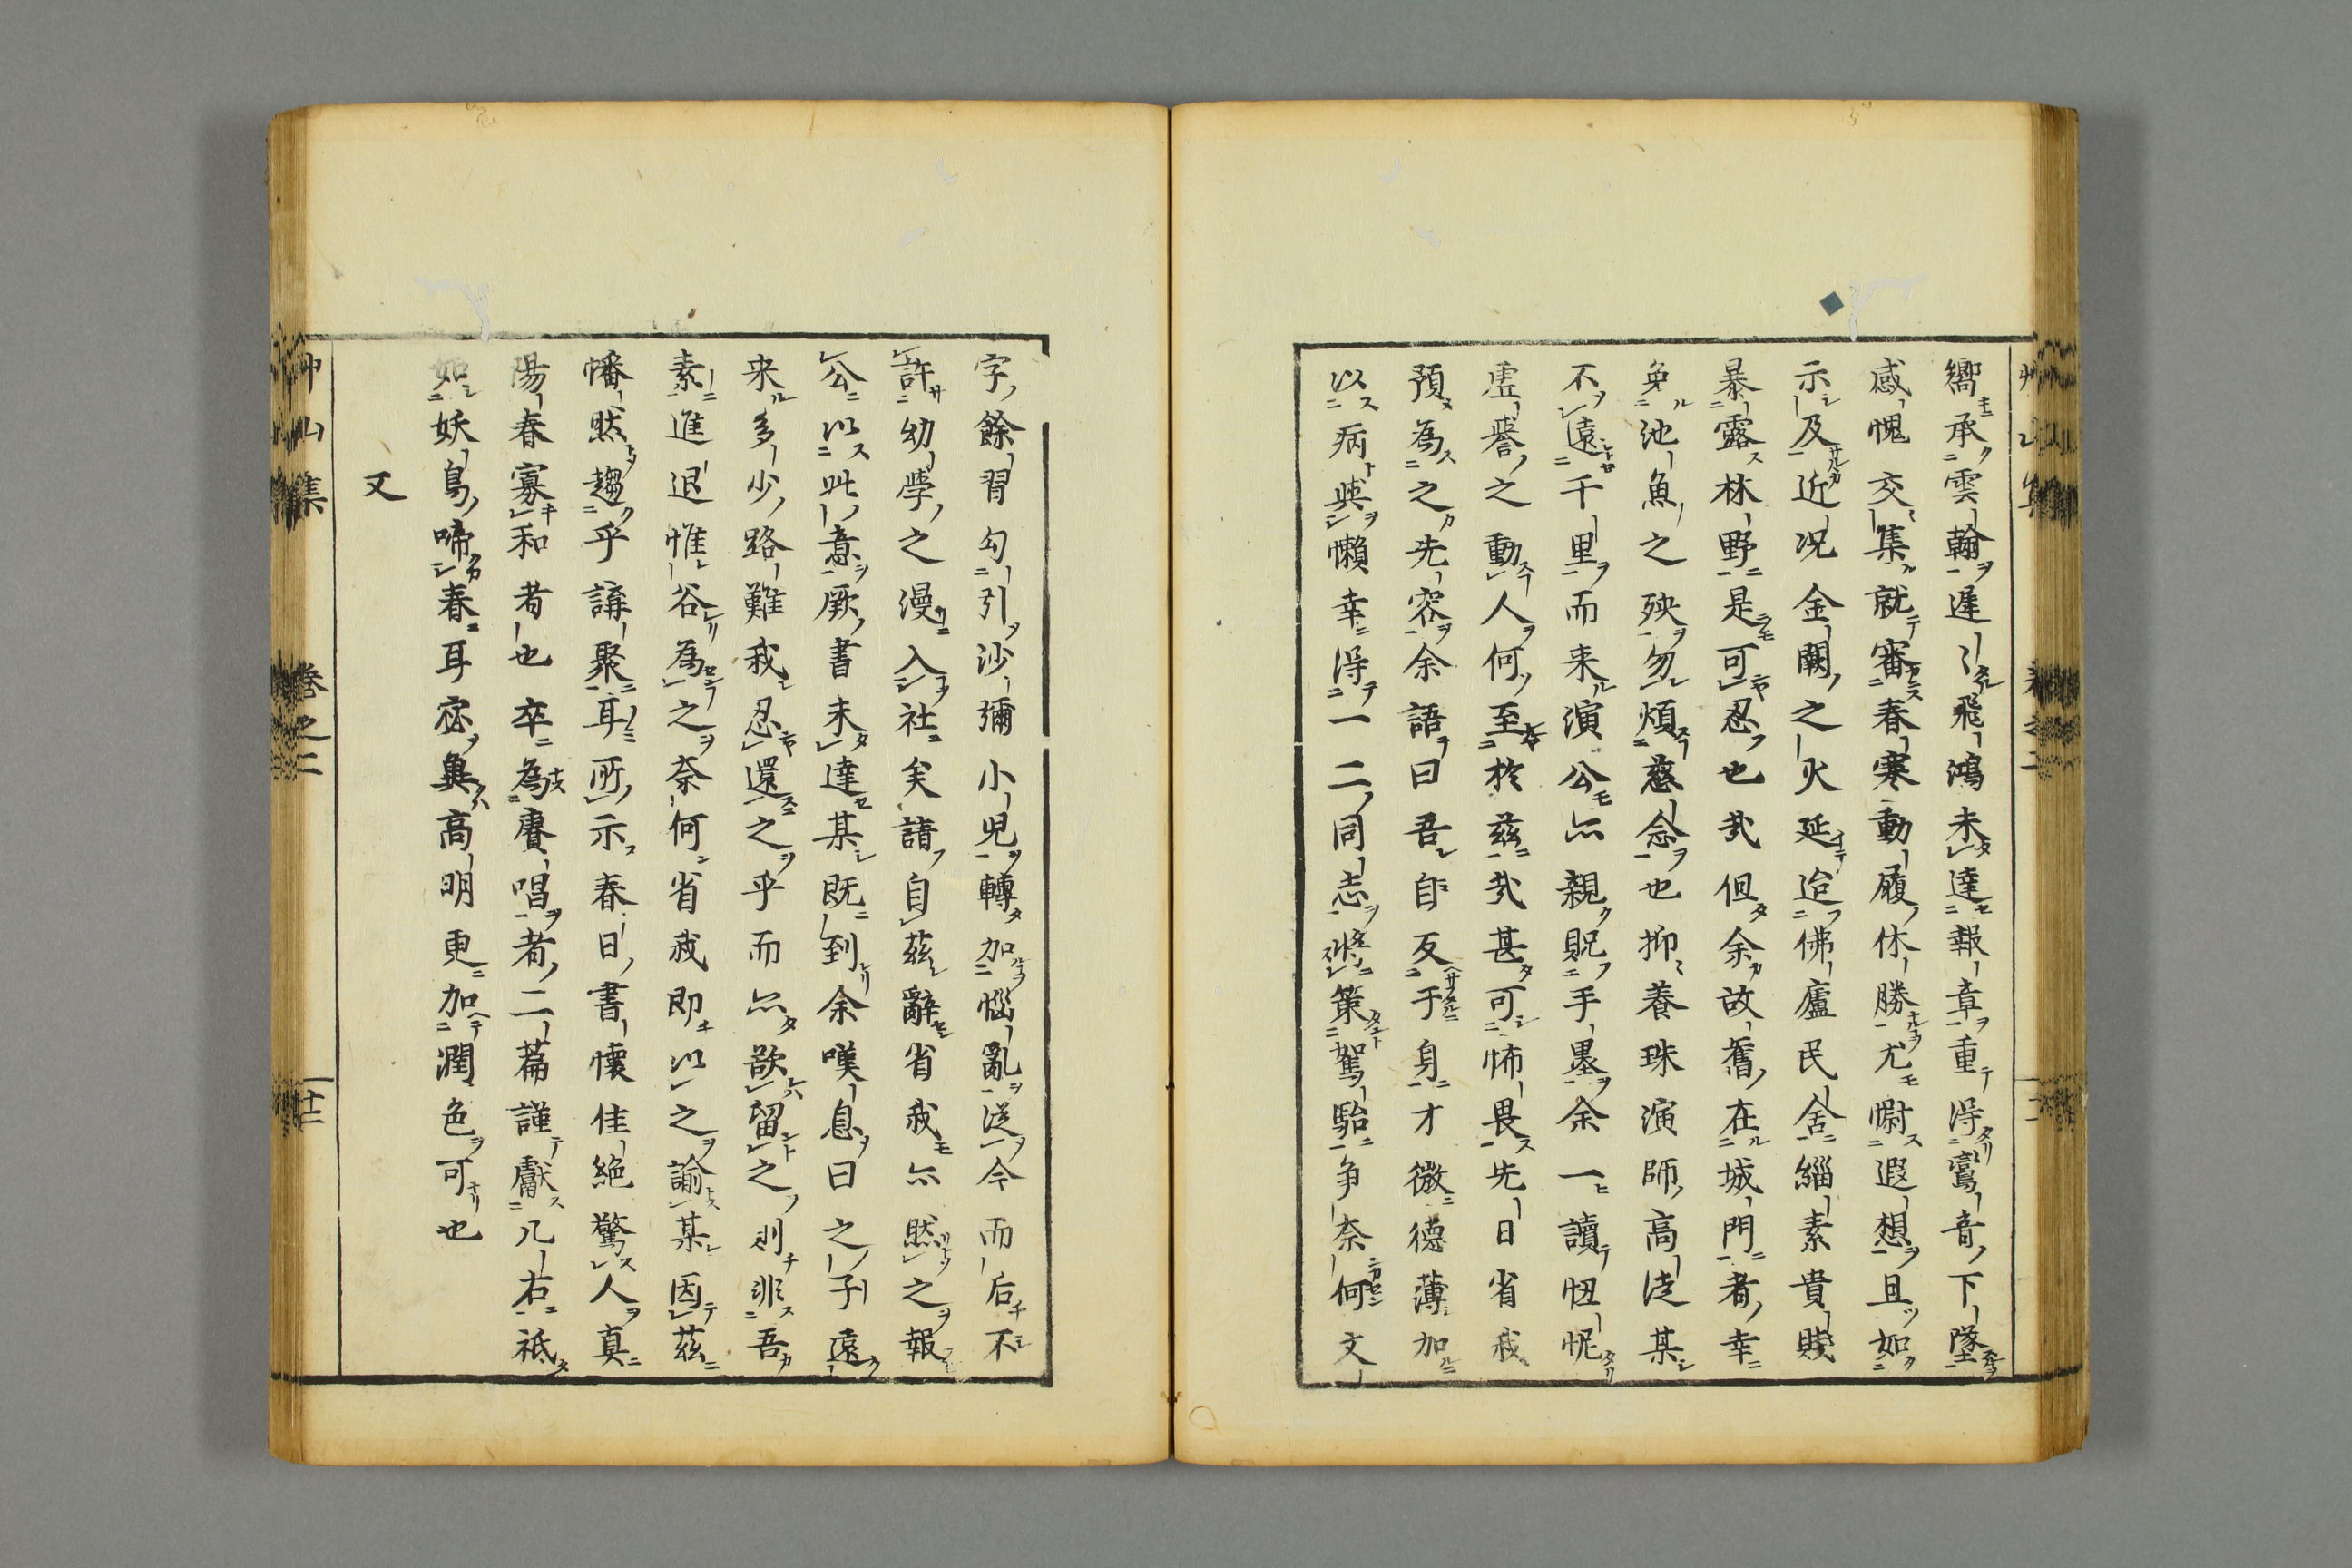 嚮承雲翰遲〻飛鴻未達報章重得鸞音下墜
感愧交集就審春寒動履休勝尤慰遐想且如
示及近況金闕之火延迨佛廬民舍緇素貴賤
暴露林野是可忍也哉但余故舊在城門者幸
免池魚之殃勿煩慈念也抑養珠演師高徒某
不遠千里而来演公亦親貺手墨余一讀忸怩
虛譽之動人何至於茲哉甚可怖畏先日省我
預為之先容余語曰吾自反于身才微德薄加
以病與懶幸得一二同志策駕駘争奈何文
字餘習勾引沙彌小児轉加惱亂從今而后不
許幼學之漫入社矣請自茲辭省我亦然之報
公以此意厥書未達某既到余嘆息曰之子遠
来多少路難我忍還之乎而亦欲留之則非吾
素進退惟谷為之奈何省我即以之諭某因茲
幡然趨乎講聚耳所示春日書懷佳絶驚人真
陽春寡和者也卒為賡唱者二篇謹獻几右祗
如妖鳥啼春耳宓奧高明更加潤色可也
又
艸山集
卷之二
十二